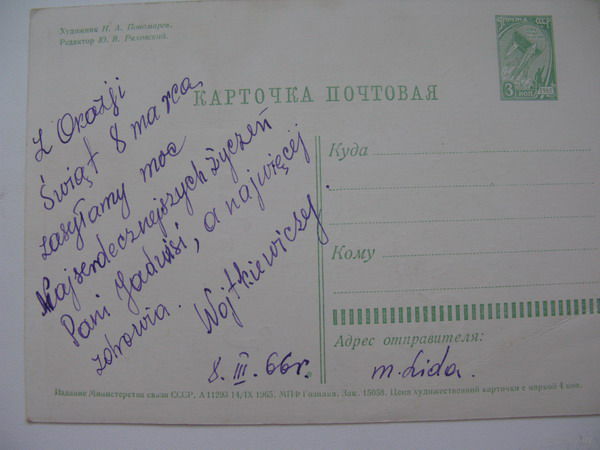 Художник Н. А. Пономарев.
Редактор Ю. В. Ряховский.
ПОЧТА СССР
3 КОП
КАРТОЧКА ПОЧТОВАЯ
Z Okazji
Świąt 8 marca
zasyłamy moc
Najserdeczniejszych życzeń
Pani Jadwisi, a najwięcej
zdrowia. Wojtkiewiczej
8. III. 66r.
Куда
Кому
Адрес отправителя:
m. Lida.
Издание Министерства связи СССР. А 11293 14/IX 1965. МПФ Гознака. Зак. 15058. Цена художественной карточки с маркой 4 коп.